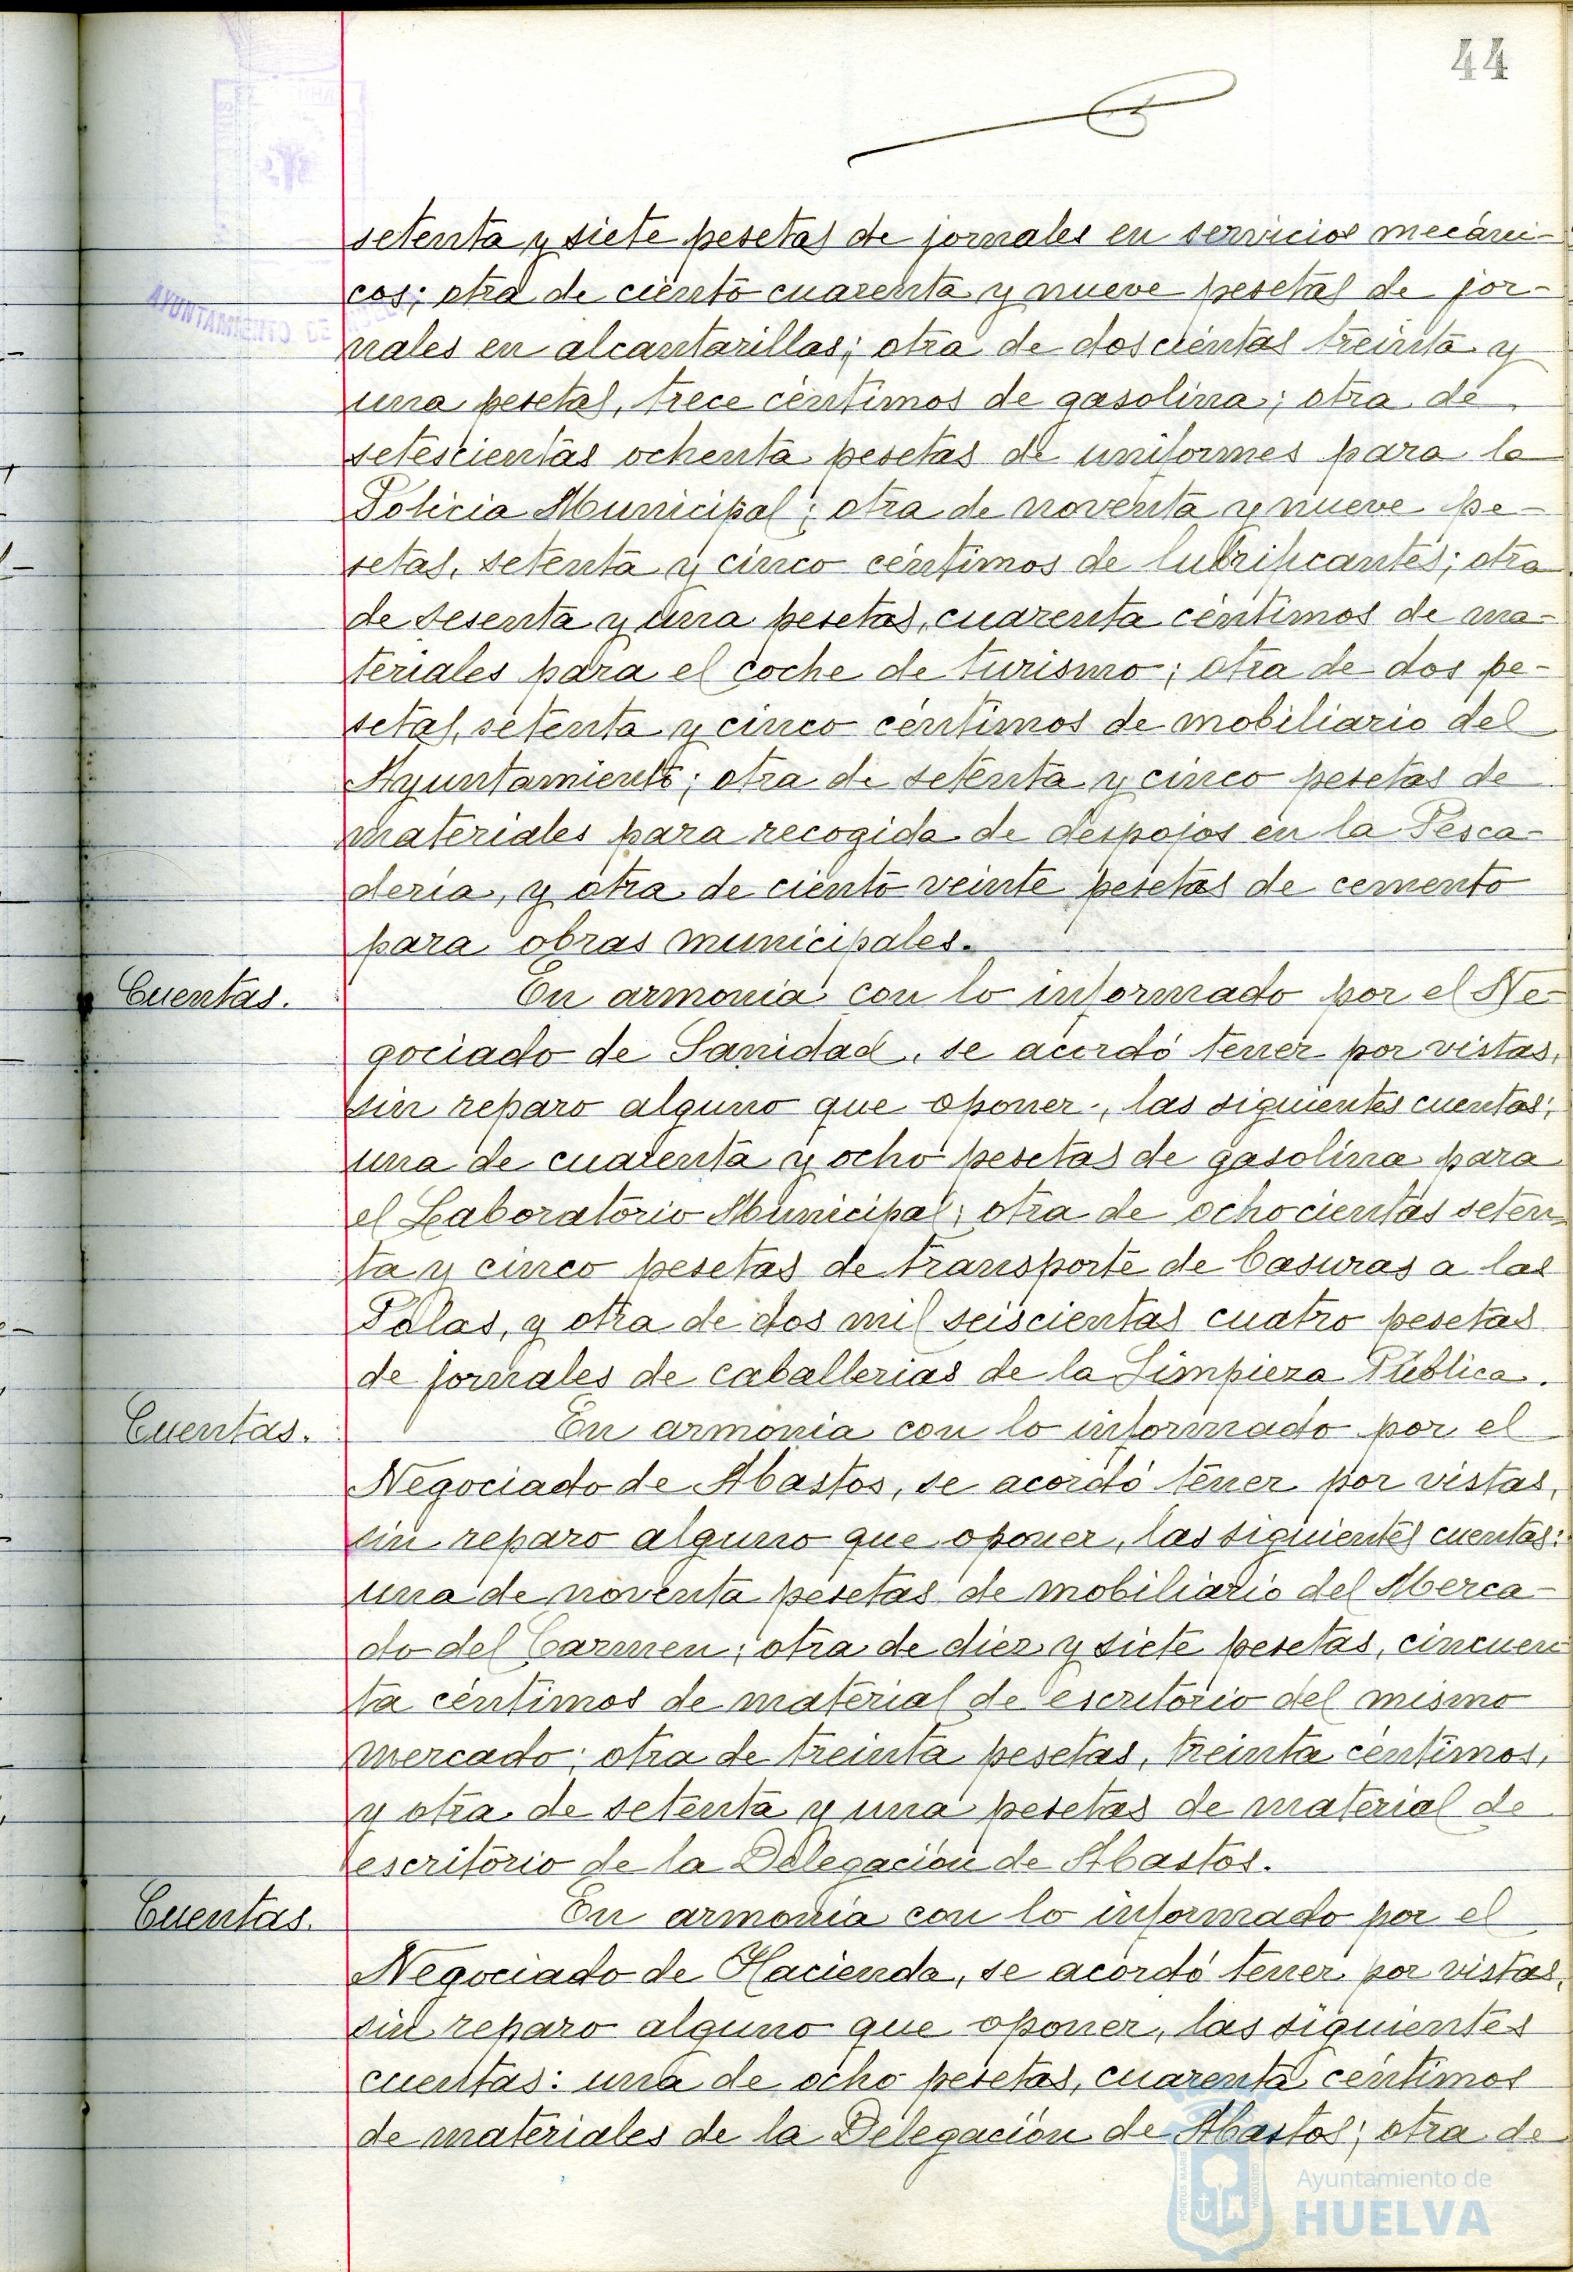 44
setenta y siete pesetas de jornales en servicios mecáni-
cos; otra de ciento cuarenta y nueve pesetas de jor-
AYUNTAMIENTO DE
nales en alcantarillas; otra de doscientas treinta y
una pesetas, trece céntimos de gasolina; otra de
setescientas ochenta pesetas de uniformes para la
Policia Municipal; otra de noventa y nueve pe-
setas, setenta y cinco céntimos de lubrificantes; otra
de sesenta y una pesetas, cuarenta céntimos de ma-
teriales para el coche de turismo; otra de dos pe-
setas, setenta y cinco céntimos de mobiliario del
Ayuntamiento; otra de setenta y cinco pesetas de
materiales para recogida de despojos en la Pesca-
dería, y otra de ciento veinte pesetas de cemento
para obras municipales.
Cuentas. En armonia con lo informado por el Ne-
gociado de Sanidad, se acordó tener por vistas,
sin reparo alguno que oponer, las siguientes cuentas:
una de cuarenta y ocho pesetas de gasolina para
el Laboratorio Municipal; otra de ochocientas seten-
ta y cinco pesetas de transporte de basuras a las
Palas, y otra de dos mil seiscientas cuatro pesetas
de jornales de caballerias de la Limpieza Pública.
Cuentas. En armonia con lo informado por el
Negociado de Abastos, se acordó tener por vistas,
sin reparo alguno que oponer, las siguientes cuentas:
una de noventa pesetas de mobiliario del Merca-
do del Carmen; otra de diez y siete pesetas, cincuen
ta céntimos de material de escritorio del mismo
mercado; otra de treinta pesetas, treinta céntimos,
y otra de setenta y una pesetas de material de
escritorio de la Delegación de Abastos.
Cuentas. En armonia con lo informado por el
Negociado de Hacienda, se acordó tener por vistas,
sin reparo alguno que oponer, las siguientes
cuentas: una de ocho pesetas, cuarenta céntimos
de materiales de la Delegación de Abastos; otra de
Ayuntamiento de
HUELVA